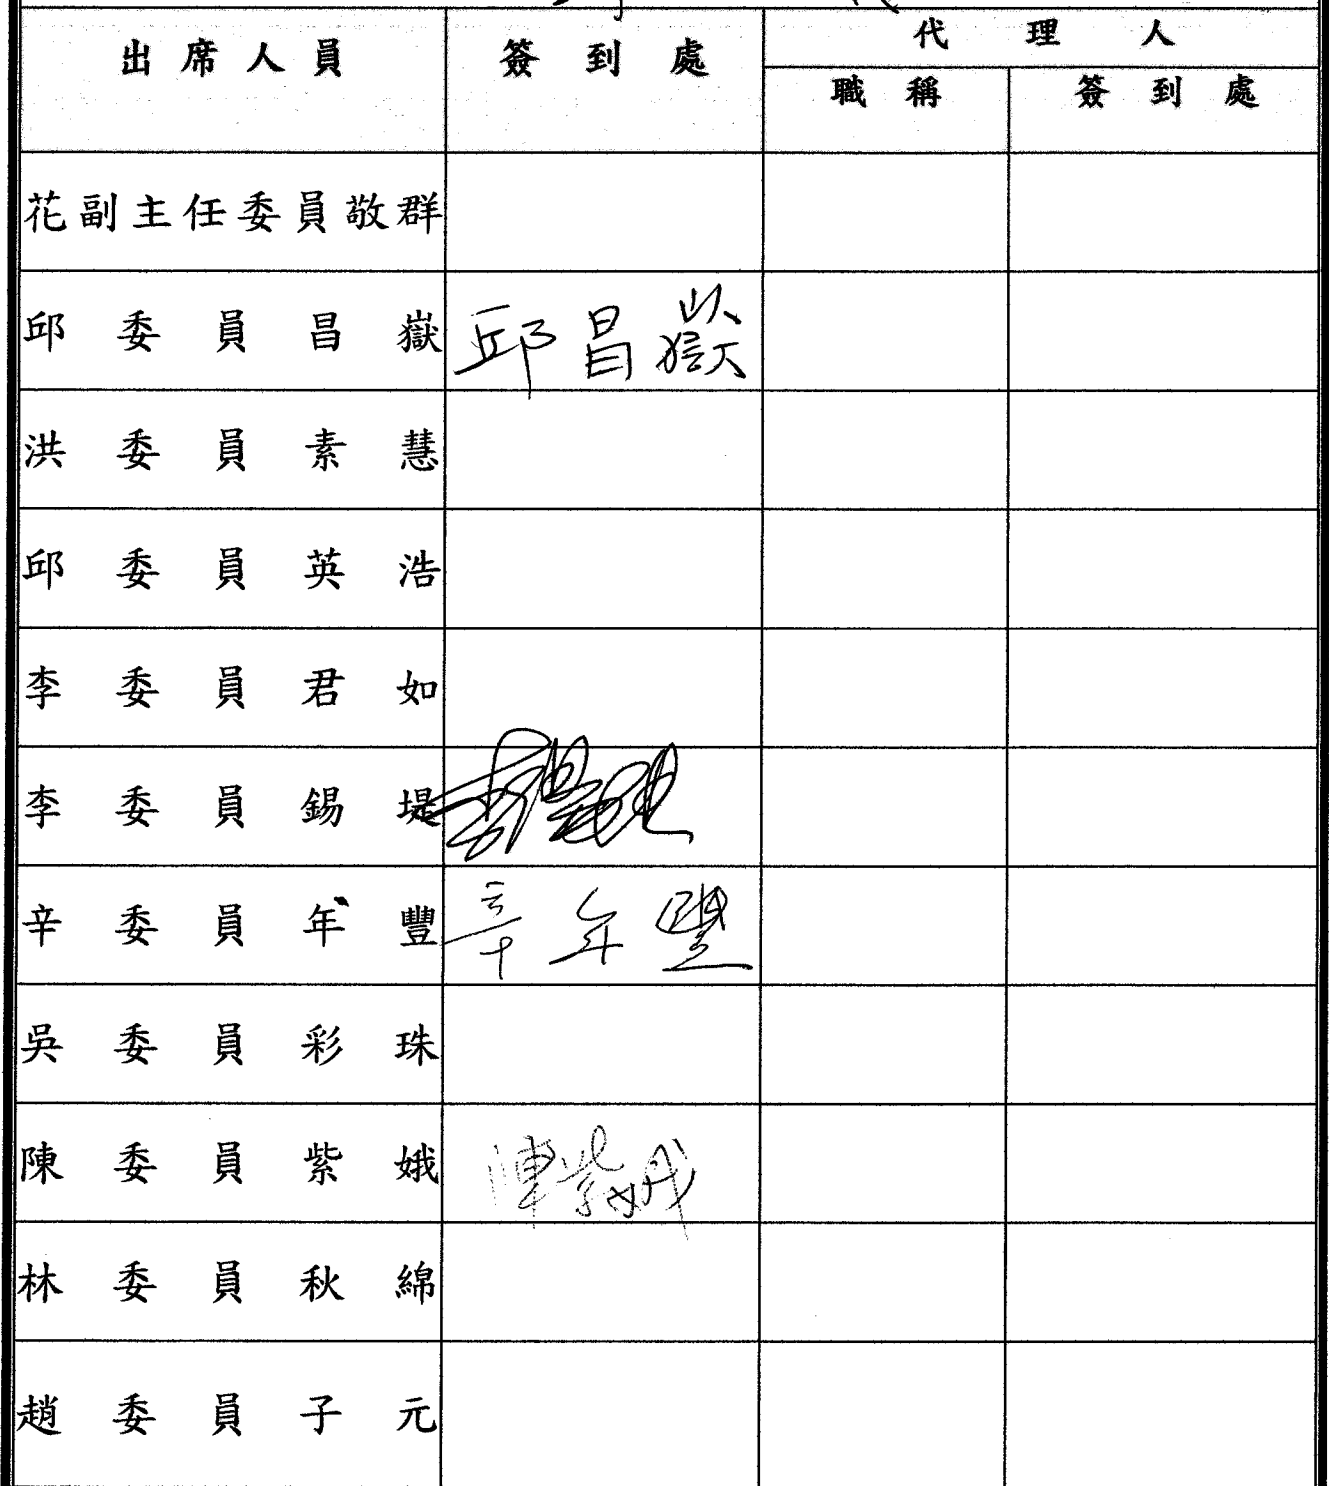 出席人員 簽到處 代理人
職稱 簽到處
花副主任委員敬群
邱委員昌嶽 邱昌嶽
洪委員素慧
邱委員英浩
李委員君如
李委員錫堤
辛委員年豐 辛年豐
吳委員彩珠
陳委員紫娥 陳紫娥
林委員秋綿
趙委員子元